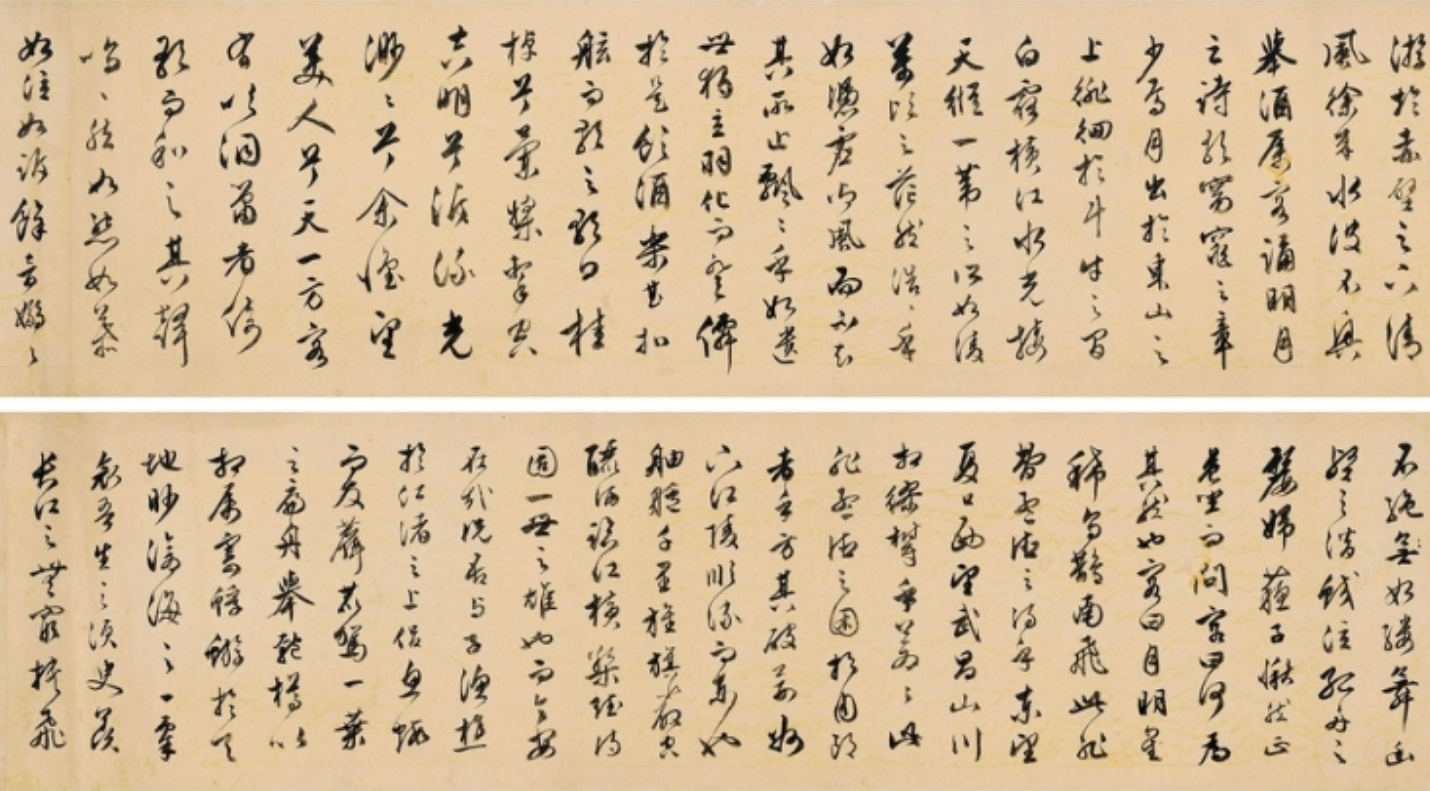 游於赤壁之下清
風徐來水波不興
舉酒屬客誦明月
之詩歌窈窕之章
少焉月出於東山之
上徘徊於斗牛之間
白露橫江水光接
天縱一葦之所如凌
萬頃之茫然浩〻乎
如馮虛御風而不知
其所止飄〻乎如遺
世獨立羽化而登僊
於是飲酒樂甚扣
舷而歌之歌曰桂
棹兮蘭槳擊空
明兮泝流光
渺〻兮余懷望
美人兮天一方客
有吹洞簫者倚
歌而和之其聲
嗚〻然如怨如慕
如泣如訴餘音嫋〻
不絕如縷舞幽
壑之潛蛟泣孤舟之
嫠婦蘇子愀然正
坐而問客曰何為
其然也客曰月明星
稀烏鵲南飛此非
曹孟德之詩乎東望
夏口西望武昌山川
相繆鬱乎蒼〻此
非孟德之困於周郎
者乎方其破荊州
下江陵順流而東也
舳艫千里旌旗蔽空
釃酒臨江橫槊賦詩
固一世之雄也而今安
在哉況吾與子漁樵
於江渚之上侶魚蝦
而友麋鹿駕一葉
之扁舟舉匏樽以
相屬寄蜉蝣於天
地眇滄海之一粟
哀吾生之須臾羨
長江之無窮挾飛